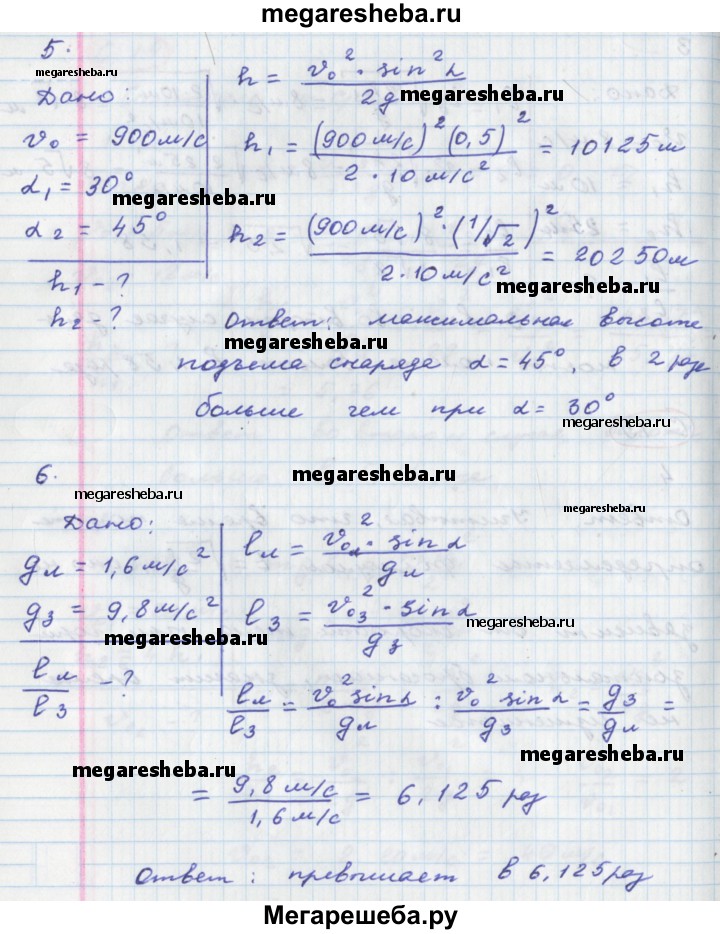 megaresheba.ru
5.
megaresheba.ru
Дано:
v₀ = 900м/с
α₁ = 30°
megaresheba.ru
α₂ = 45°
h₁ - ?
h₂ - ?
h = v₀² · sin²α / 2g
megaresheba.ru
h₁ = (900м/с)² (0,5)² / 2 · 10 м/с² = 10125м
megaresheba.ru
h₂ = (900м/с)² · (1/√2)² / 2·10 м/с² = 20250м
megaresheba.ru
Ответ: максимальная высота
megaresheba.ru
подъема снаряда α = 45°, в 2 раз
больше чем при α = 30°
megaresheba.ru
6.
megaresheba.ru
megaresheba.ru
megaresheba.ru
Дано:
gл = 1,6 м/с²
gз = 9,8 м/с²
megaresheba.ru
lл/lз - ?
lл = v₀л² · sin α / gл
lз = v₀з² · sin α / gз
megaresheba.ru
lл/lз = v₀² sin α / gл : v₀² sin α / gз = gз/gл =
megaresheba.ru
megaresheba.ru
= 9,8 м/с / 1,6 м/с = 6,125 раз
megaresheba.ru
Ответ: превышает в 6,125 раз
Мегарешеба.ру